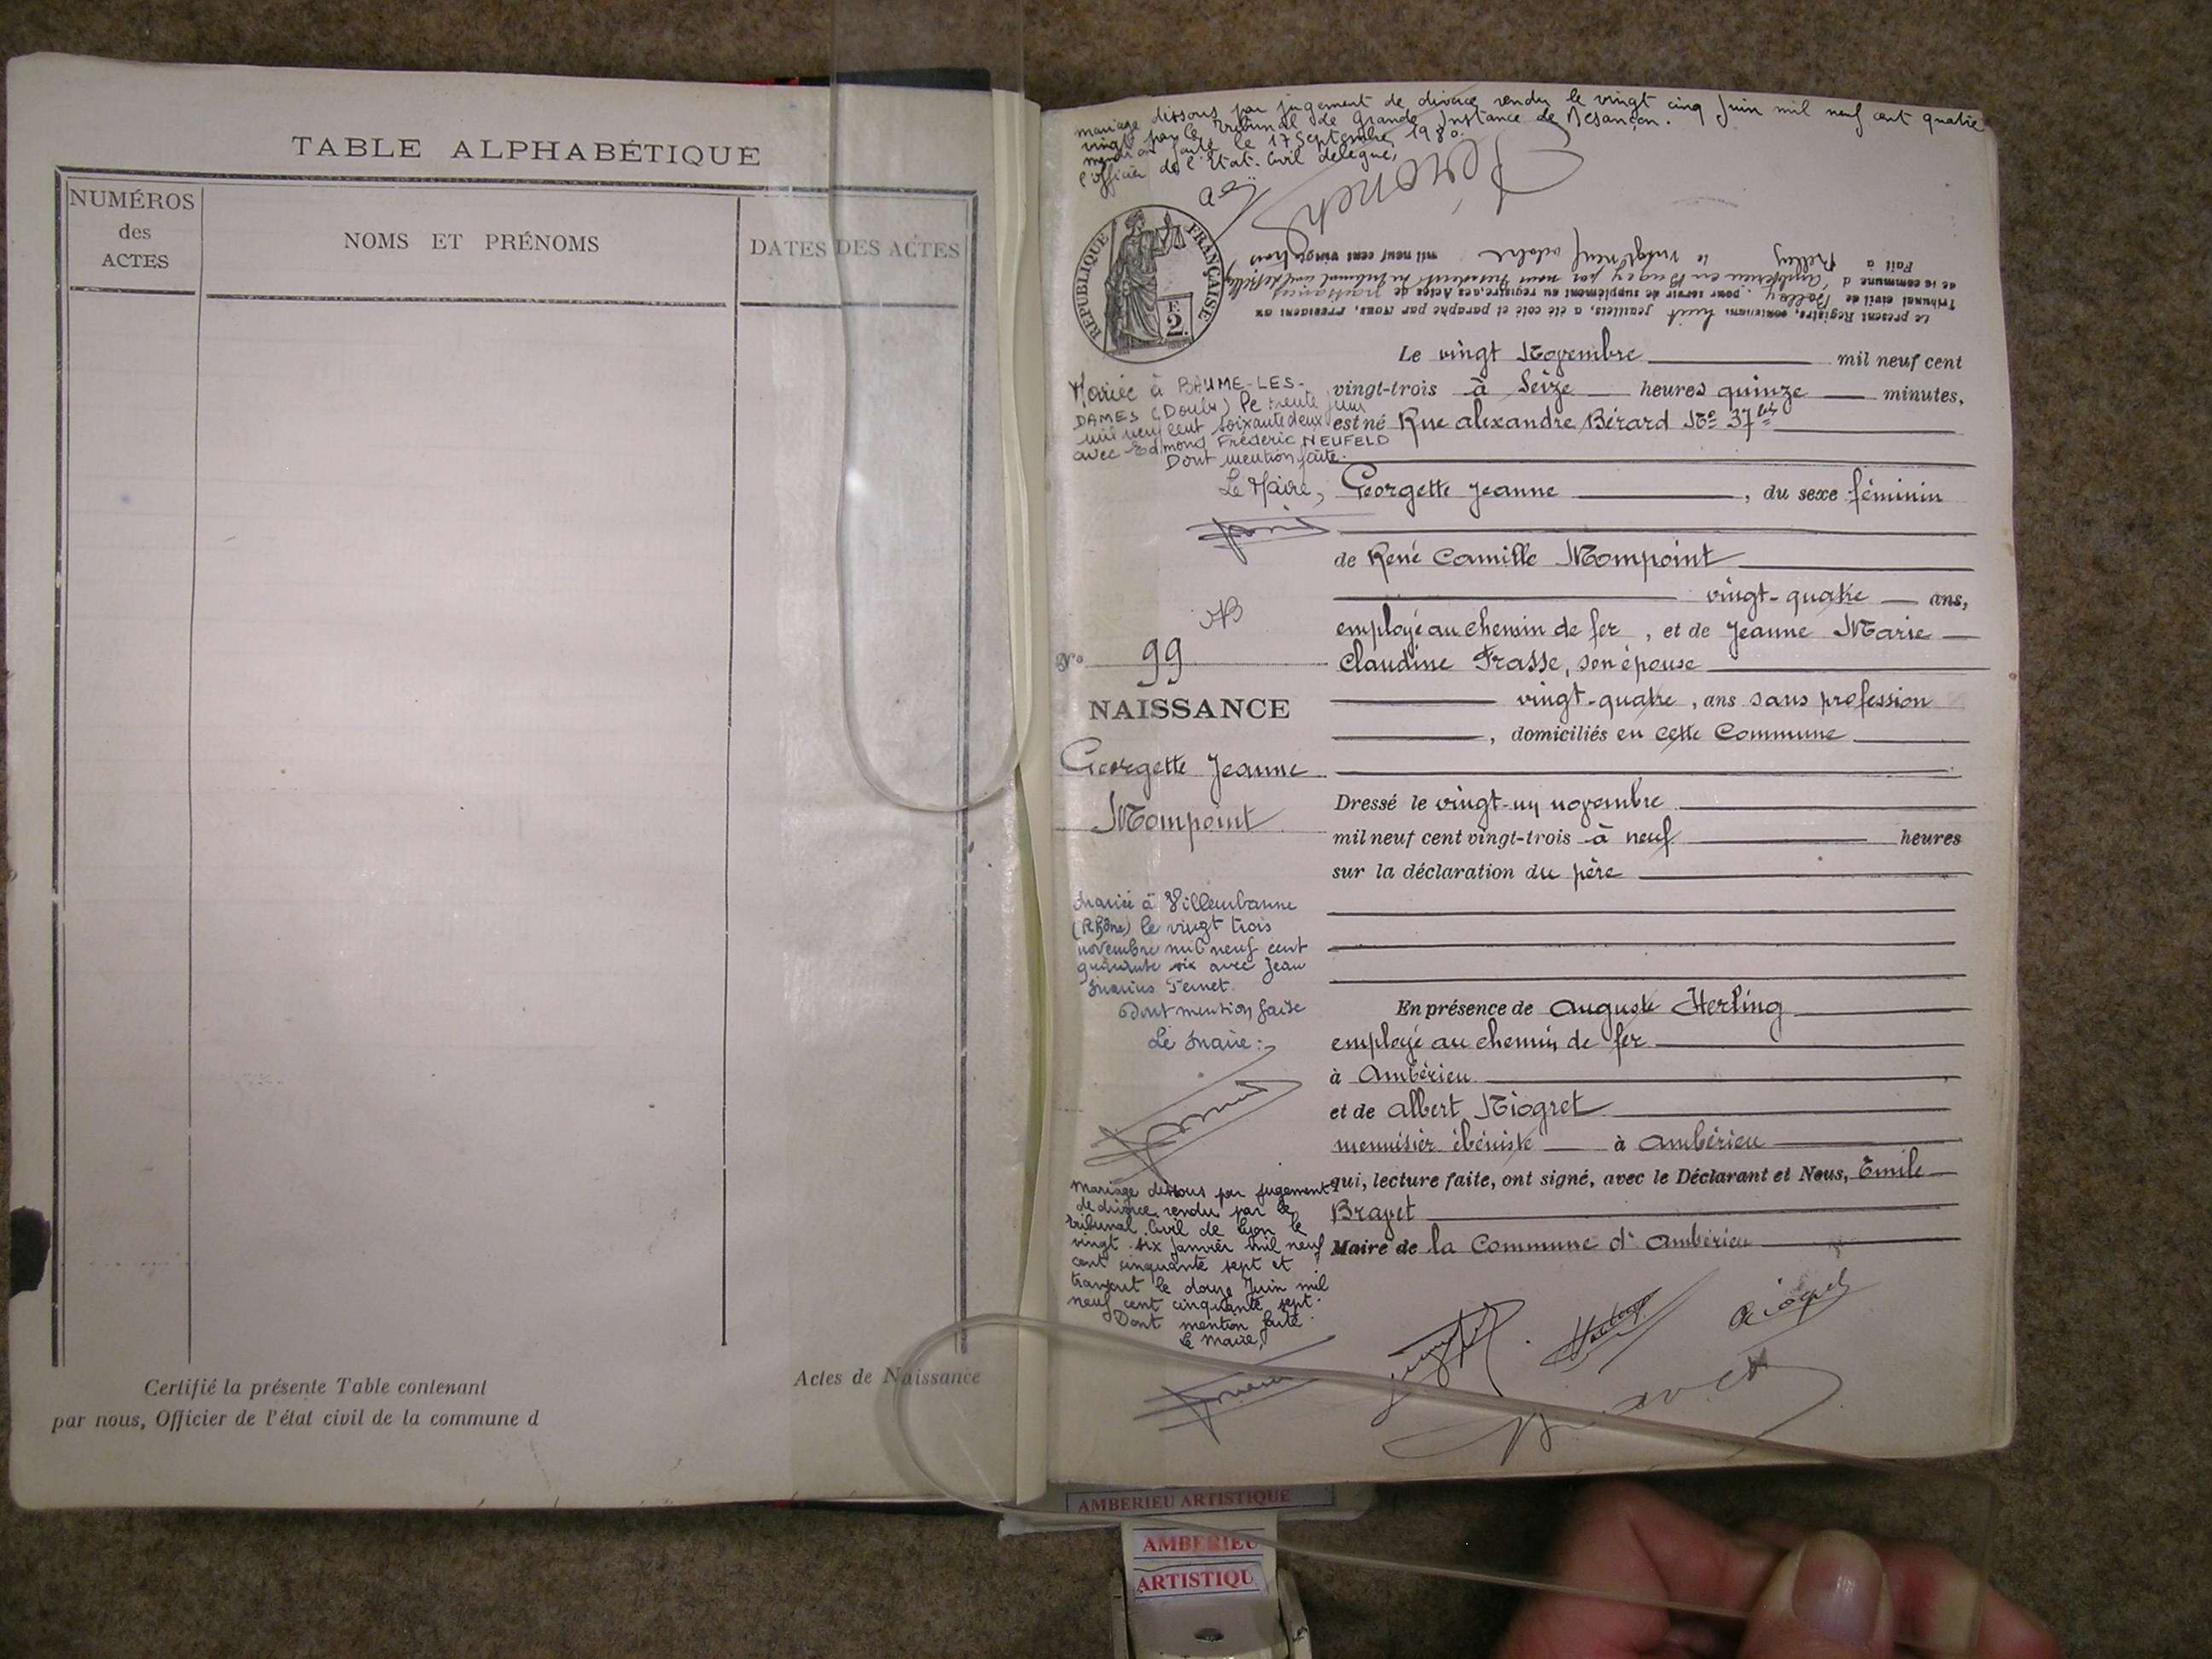 TABLE ALPHABÉTIQUE
NUMÉROS
des
ACTES
NOMS ET PRÉNOMS
DATES DES ACTES
Certifié la présente Table contenant
Actes de Naissance
par nous, Officier de l'état civil de la commune d
mariage dissous par jugement de divorce rendu le vingt cinq Juin mil neuf cent quatre
vingt par le Tribunal de Grande Instance de Besançon.
mention faite le 17 Septembre 1980.
l'officier de l'Etat-Civil délégué,
RÉPUBLIQUE FRANÇAISE
F.
2
Le présent Registre, contenant huit feuillets, a été coté et paraphé par Nous, Président au
Tribunal civil de Belley, pour servir de supplément au registre des Actes de naissances
de la commune d'Ambérieu en Bugey par nous Président du tribunal civil de Belley
Fait à Belley le vingt neuf octobre mil neuf cent vingt trois
Le vingt Novembre mil neuf cent
vingt-trois à Seize heures quinze minutes,
est né Rue alexandre Bérard No 37 bis
Georgette Jeanne , du sexe féminin
de René Camille Mompoint
vingt-quatre ans,
employé au chemin de fer , et de Jeanne Marie
Claudine Frasse, son épouse
vingt-quatre , ans sans profession
, domiciliés en cette Commune
Dressé le vingt-un novembre
mil neuf cent vingt-trois à neuf heures
sur la déclaration du père
En présence de Auguste Herling
employé au chemin de fer
à Ambérieu
et de Albert Niogret
menuisier ébéniste à Ambérieu
qui, lecture faite, ont signé, avec le Déclarant et Nous, Emile
Bravet
Maire de la Commune d'Ambérieu
Mariée à BAUME-LES-
DAMES (Doubs) le trente juin
mil neuf cent soixante deux
avec Edmond Frédéric NEUFELD
Dont mention faite.
Le Maire,
No 99
NAISSANCE
Georgette Jeanne
Mompoint
Mariée à Villeurbanne
(Rhône) le vingt trois
novembre mil neuf cent
quarante six avec Jean
Marius Ternet.
Dont mention faite
Le Maire:
Mariage dissous par jugement
de divorce rendu par le
tribunal Civil de Lyon le
vingt six Janvier mil neuf
cent cinquante sept et
transcrit le douze Juin mil
neuf cent cinquante sept.
Dont mention faite.
Le Maire,
Niogret
Bravet
AMBERIEU ARTISTIQUE
AMBERIEU
ARTISTIQU